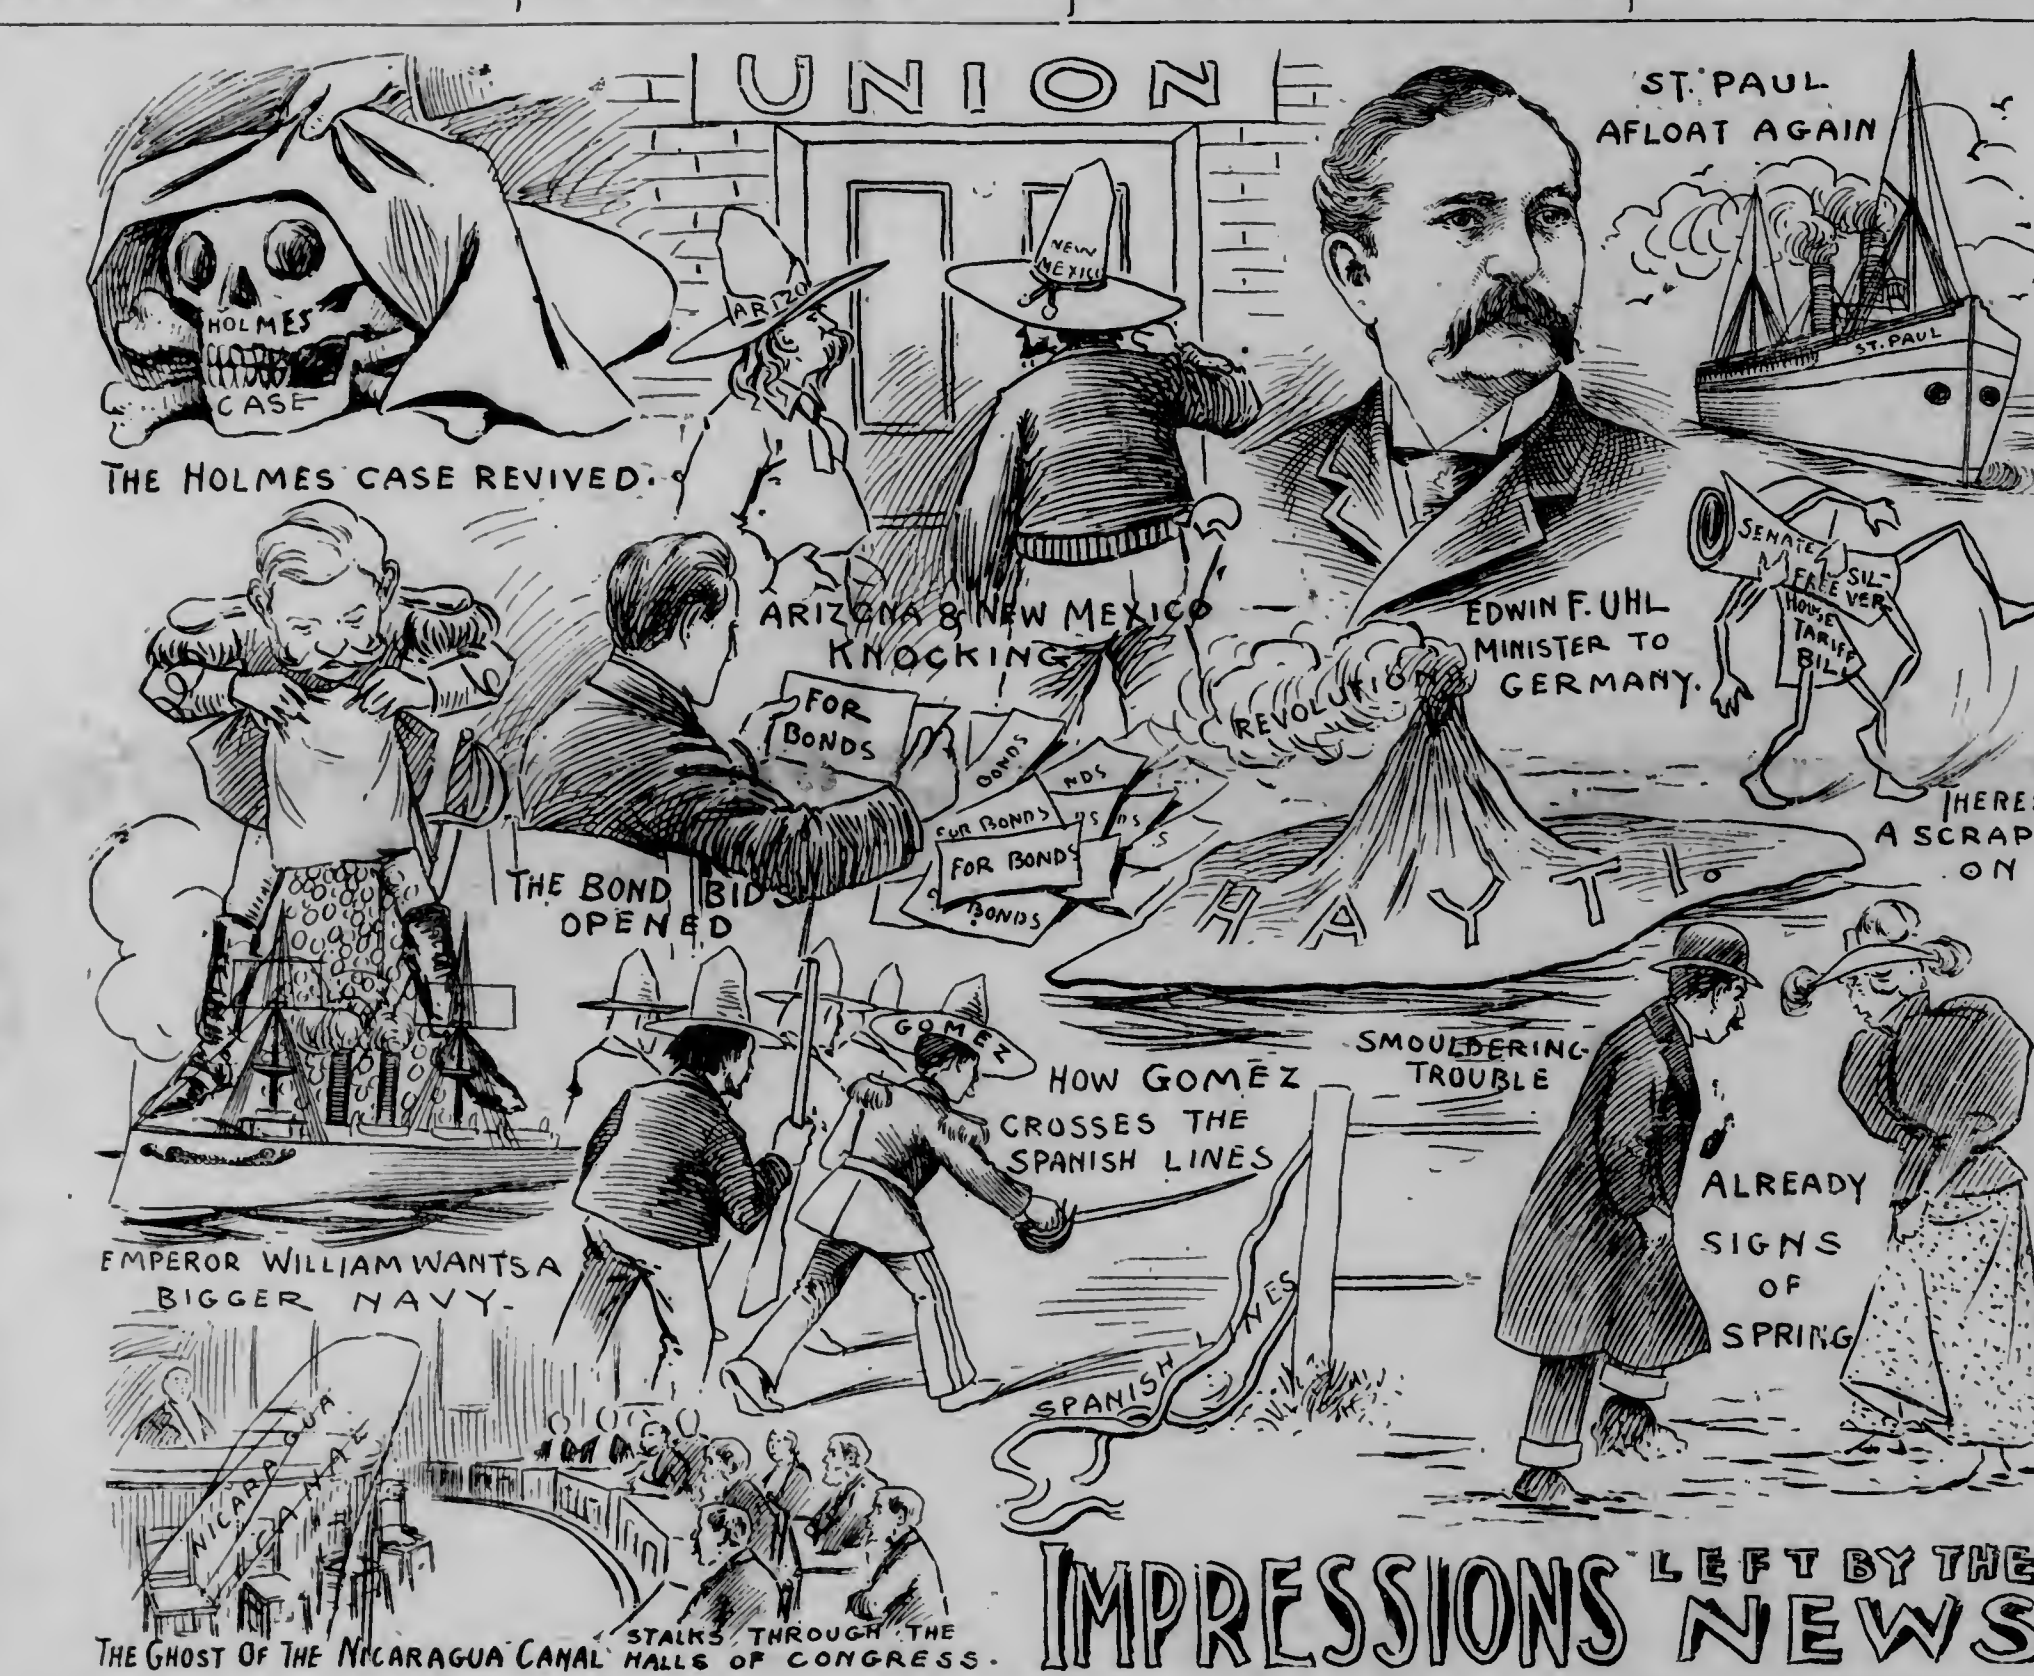 UNION
ST. PAUL
AFLOAT AGAIN
HOLMES
CASE
THE HOLMES CASE REVIVED.
ARIZO
NEW
MEXICO
ARIZONA & NEW MEXICO
KNOCKING
ST. PAUL
EDWIN F. UHL
MINISTER TO
GERMANY.
SENATE
FREE SIL-
VER
HOUSE
TARIFF
BILL
THERE'S
A SCRAP
ON
FOR
BONDS
BONDS
NDS
FOR BONDS
'S
DS
S
FOR BONDS
BONDS
THE BOND BIDS
OPENED
REVOLUTION
HAYTI.
SMOULDERING
TROUBLE
EMPEROR WILLIAM WANTS A
BIGGER NAVY.
GOMEZ
HOW GOMEZ
CROSSES THE
SPANISH LINES
SPANISH LINES
ALREADY
SIGNS
OF
SPRING
NICARAGUA
CANAL
THE GHOST OF THE NICARAGUA CANAL STALKS THROUGH THE
HALLS OF CONGRESS.
IMPRESSIONS LEFT BY THE
NEWS